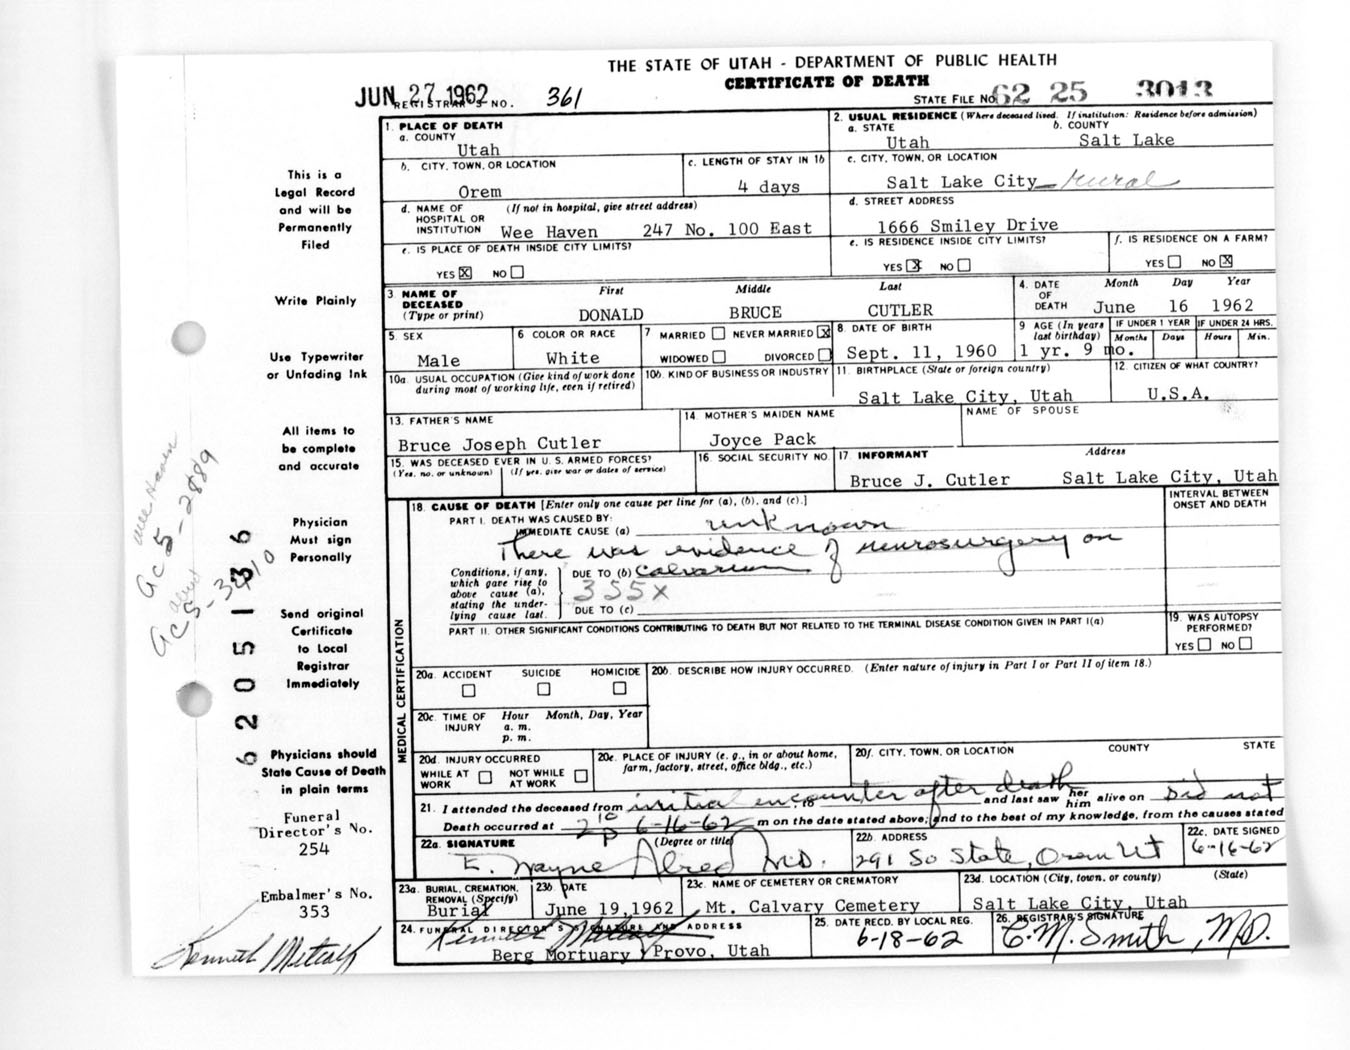 THE STATE OF UTAH - DEPARTMENT OF PUBLIC HEALTH
CERTIFICATE OF DEATH
JUN 27 1962
REGISTRAR'S NO. 361
STATE FILE NO. 62 25 3013
1. PLACE OF DEATH
a. COUNTY
Utah
2. USUAL RESIDENCE (Where deceased lived. If institution: Residence before admission)
a. STATE b. COUNTY
Utah Salt Lake
b. CITY, TOWN, OR LOCATION
Orem
c. LENGTH OF STAY IN 1b
4 days
c. CITY, TOWN, OR LOCATION
Salt Lake City rural
d. NAME OF HOSPITAL OR INSTITUTION (If not in hospital, give street address)
Wee Haven 247 No. 100 East
d. STREET ADDRESS
1666 Smiley Drive
e. IS PLACE OF DEATH INSIDE CITY LIMITS?
YES X NO
e. IS RESIDENCE INSIDE CITY LIMITS?
YES X NO
f. IS RESIDENCE ON A FARM?
YES NO X
3 NAME OF DECEASED (Type or print)
First Middle Last
DONALD BRUCE CUTLER
4. DATE OF DEATH
Month Day Year
June 16 1962
5. SEX
Male
6 COLOR OR RACE
White
7 MARRIED NEVER MARRIED X
WIDOWED DIVORCED
8. DATE OF BIRTH
Sept. 11, 1960
9 AGE (In years last birthday)
1 yr. 9 mo.
IF UNDER 1 YEAR
Months Days
IF UNDER 24 HRS.
Hours Min.
10a. USUAL OCCUPATION (Give kind of work done during most of working life, even if retired)
10b. KIND OF BUSINESS OR INDUSTRY
11. BIRTHPLACE (State or foreign country)
Salt Lake City, Utah
12. CITIZEN OF WHAT COUNTRY?
U.S.A.
13. FATHER'S NAME
Bruce Joseph Cutler
14. MOTHER'S MAIDEN NAME
Joyce Pack
NAME OF SPOUSE
15. WAS DECEASED EVER IN U. S. ARMED FORCES?
(Yes, no, or unknown) (If yes, give war or dates of service)
16. SOCIAL SECURITY NO.
17. INFORMANT Address
Bruce J. Cutler Salt Lake City, Utah
18. CAUSE OF DEATH [Enter only one cause per line for (a), (b), and (c).]
INTERVAL BETWEEN ONSET AND DEATH
PART I. DEATH WAS CAUSED BY:
IMMEDIATE CAUSE (a) unknown
There was evidence of neurosurgery on
Conditions, if any, which gave rise to above cause (a), stating the underlying cause last.
DUE TO (b) calvarium
355X
DUE TO (c)
PART II. OTHER SIGNIFICANT CONDITIONS CONTRIBUTING TO DEATH BUT NOT RELATED TO THE TERMINAL DISEASE CONDITION GIVEN IN PART I(a)
19. WAS AUTOPSY PERFORMED?
YES NO
MEDICAL CERTIFICATION
20a. ACCIDENT SUICIDE HOMICIDE
20b. DESCRIBE HOW INJURY OCCURRED. (Enter nature of injury in Part I or Part II of item 18.)
20c. TIME OF INJURY Hour Month, Day, Year
a. m.
p. m.
20d. INJURY OCCURRED
WHILE AT WORK NOT WHILE AT WORK
20e. PLACE OF INJURY (e. g., in or about home, farm, factory, street, office bldg., etc.)
20f. CITY, TOWN, OR LOCATION COUNTY STATE
21. I attended the deceased from initial encounter after death, 19 and last saw her him alive on Did not
Death occurred at 2 10 P 6-16-62 m on the date stated above; and to the best of my knowledge, from the causes stated
22a. SIGNATURE (Degree or title)
E. Wayne Alred M.D.
22b. ADDRESS
291 So State, Orem Ut
22c. DATE SIGNED
6-16-62
23a. BURIAL, CREMATION, REMOVAL (Specify)
Burial
23b. DATE
June 19, 1962
23c. NAME OF CEMETERY OR CREMATORY
Mt. Calvary Cemetery
23d. LOCATION (City, town, or county) (State)
Salt Lake City, Utah
24. FUNERAL DIRECTOR'S SIGNATURE AND ADDRESS
Kenneth Metcalf
Berg Mortuary, Provo, Utah
25. DATE RECD. BY LOCAL REG.
6-18-62
26. REGISTRAR'S SIGNATURE
C. M. Smith, M.D.
This is a
Legal Record
and will be
Permanently
Filed
Write Plainly
Use Typewriter
or Unfading Ink
All items to
be complete
and accurate
Physician
Must sign
Personally
Send original
Certificate
to Local
Registrar
Immediately
Physicians should
State Cause of Death
in plain terms
Funeral
Director's No.
254
Embalmer's No.
353
Kenneth Metcalf
62 205136
Wee Haven
AC5-2889
Alred